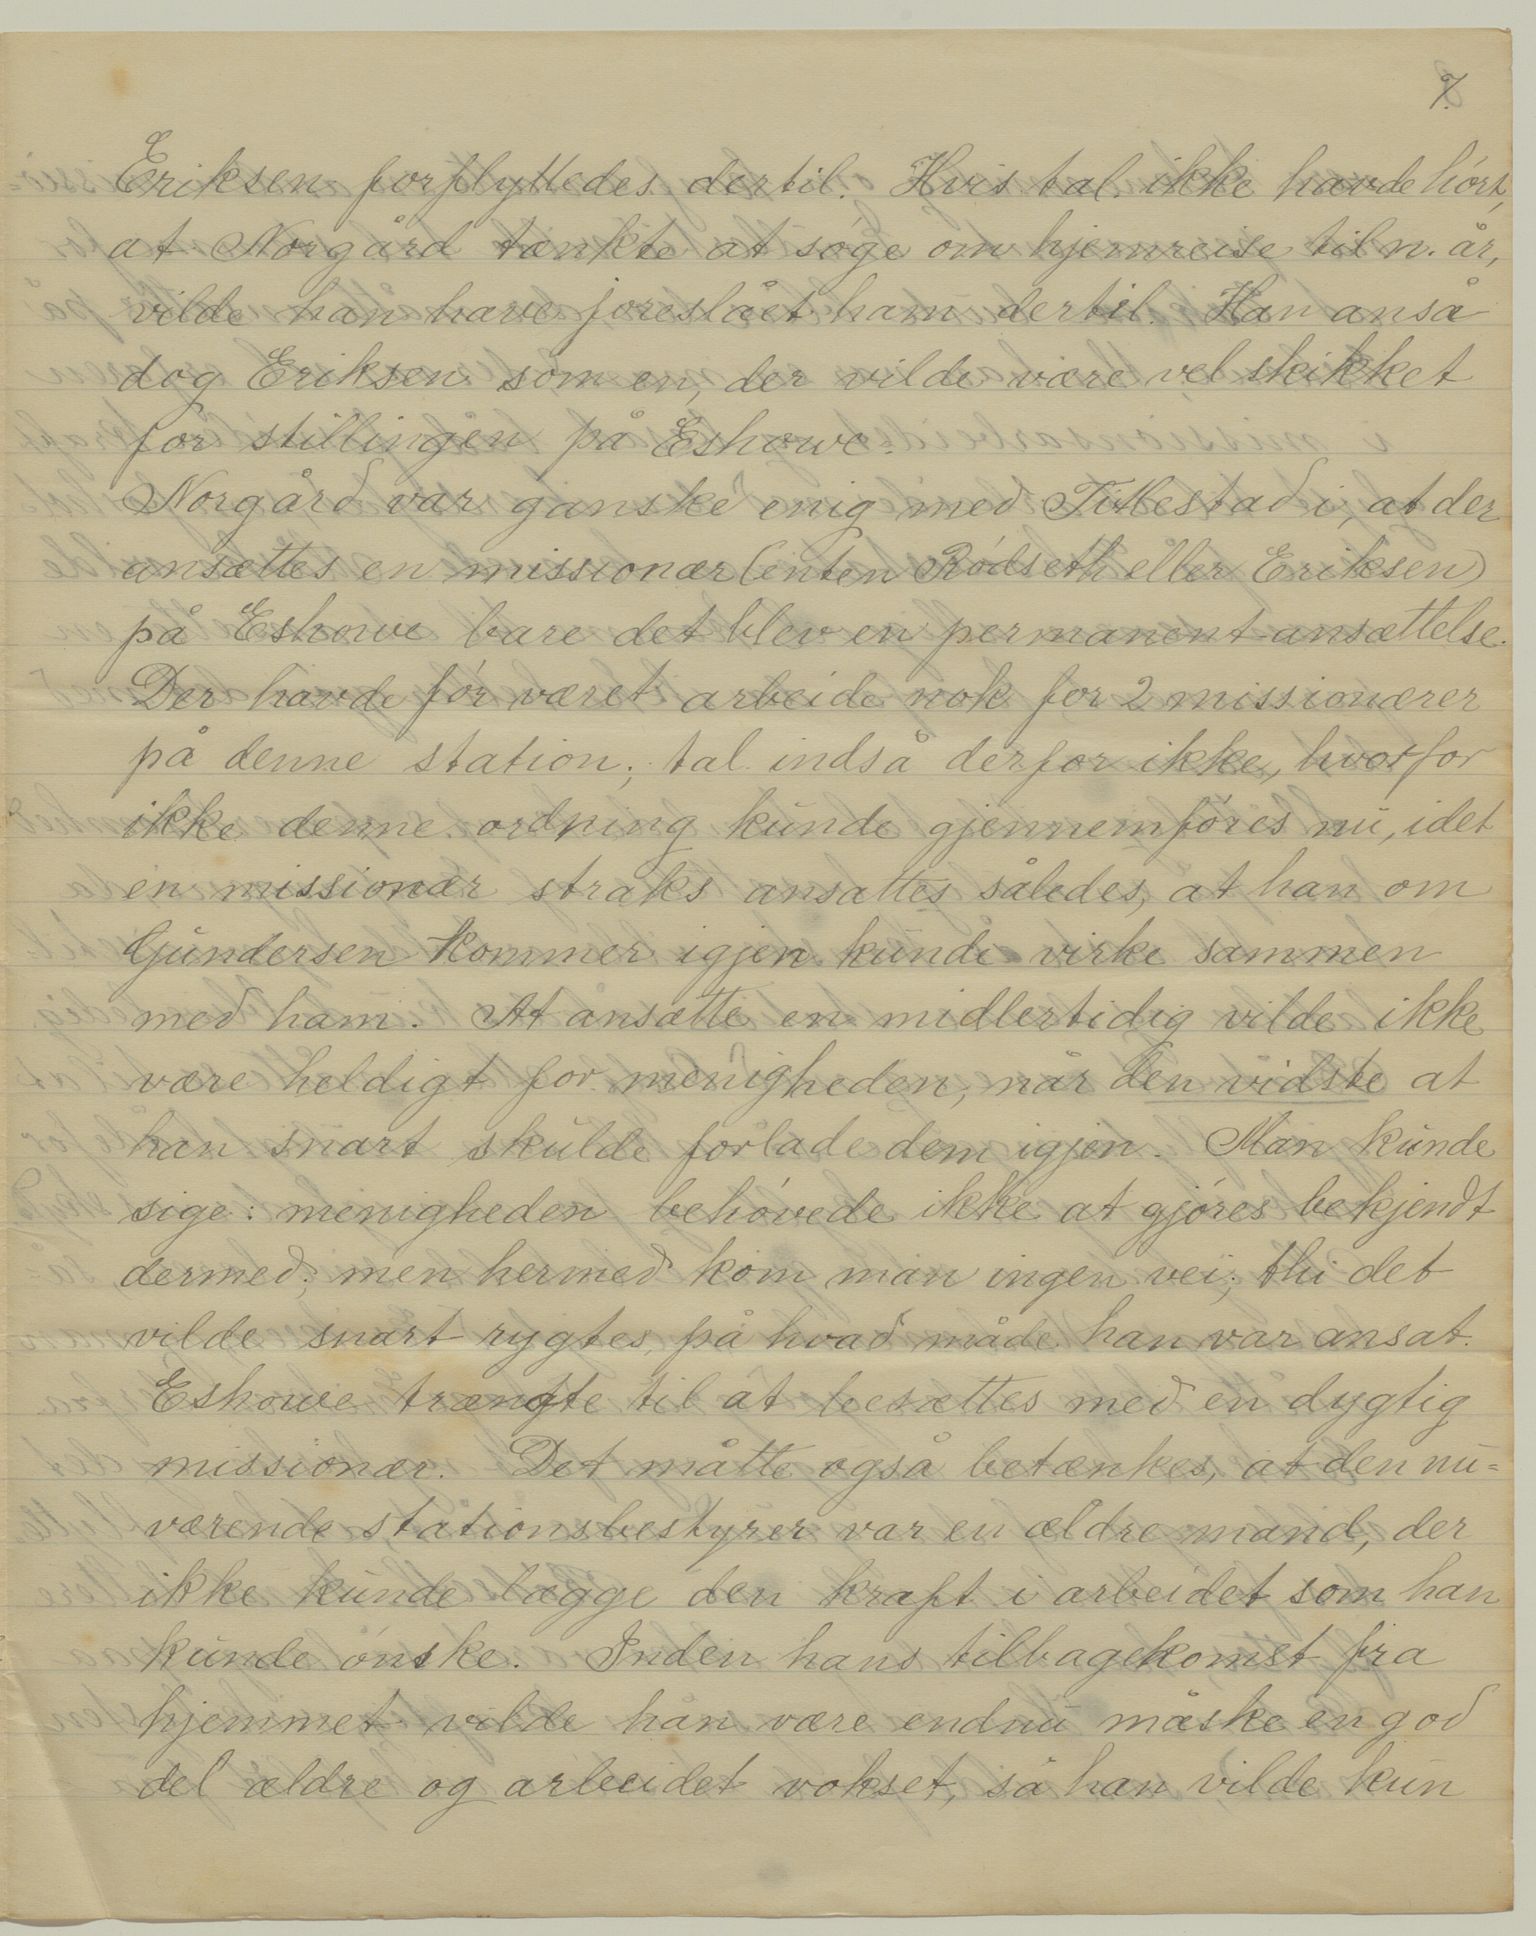 7.
Eriksen forflyttedes dertil. Hvis tal. ikke havde hórt,
at Norgård tænkte at sóge om hjemreise til n. år,
vilde han have foreslået ham dertil. Han anså
dog Eriksen som en, der vilde være vel skikket
for stillingen på Eshowe.
Norgård var ganske enig med Titlestad i, at der
ansættes en missionær (enten Ródseth eller Eriksen)
på Eshowe bare det blev en permanent ansættelse.
Der havde fór været arbeide nok for 2 missionærer
på denne station; tal. indså derfor ikke, hvorfor
ikke denne ordning kunde gjennemfóres nu, idet
en missionær straks ansattes således, at han om
Gundersen kommer igjen kunde virke sammen
med ham. At ansætte en midlertidig vilde ikke
være heldigt for menigheden, når den vidste at
han snart skulde forlade dem igjen. Man kunde
sige: menigheden behóvede ikke at gjóres bekjendt
dermed; men hermed kom man ingen vei; thi det
vilde snart rygtes, på hvad måde han var ansat.
Eshowe trængte til at besættes med en dygtig
missionær. Det måtte også betænkes, at den nu=
værende stationsbestyrer var en ældre mand, der
ikke kunde lægge den kraft i arbeidet som han
kunde ónske. Inden hans tilbagekomst fra
hjemmet vilde han være endnu måske en god
del ældre og arbeidet vokset, så han vilde kun